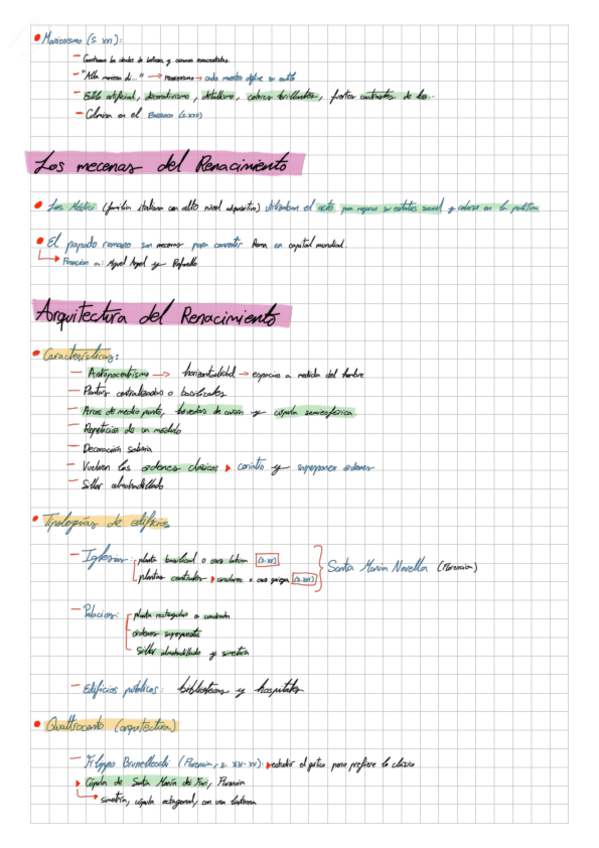 Manierismo (s. XVI):
- Cuestiona los ideales de belleza y cánones renacentistas
- "Alla maniera di..." → Manierismo → cada maestro define su estilo
- Estilo artificial, decorativismo, detallismo, colores brillantes, fuertes contrastes de luz..
- Culmina en el Barroco (s. XVII)
Los mecenas del Renacimiento
Los Médici (familia italiana con alto nivel adquisitivo) utilizaban el arte para mejorar su estatus social y colarse en la política
El papado romano son mecenas para convertir Roma en capital mundial.
Financian a: Miguel Ángel y Rafaello
Arquitectura del Renacimiento
Características:
- Antropocentrismo → horizontalidad → espacios a medida del hombre
- Plantas centralizadas o basilicales
- Arcos de medio punto, bóvedas de cañón y cúpula semiesférica
- Repetición de un módulo
- Decoración sobria
- Vuelven los órdenes clásicos corintio y superponer órdenes
- Sillar almohadillado
Tipologías de edificios
- Iglesias: planta basilical o cruz latina (s. XV)
plantas centrales circulares o cruz griega (s. XVI)
Santa María Novella (Florencia)
- Palacios: planta rectangular o cuadrada
órdenes superpuestos
Sillar almohadillado y simetría
- Edificios públicos: bibliotecas y hospitales
Quattrocento (arquitectura)
- Filippo Brunelleschi (Florencia, s. XIV-XV): el gótico pero prefiere lo clásico
Cúpula de Santa María dei Fiori, Florencia
simetría, cúpula octogonal, con una linterna